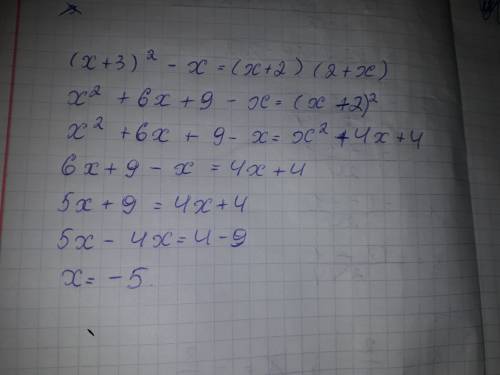 (x+3)² - x = (x+2) (2+x)
x² + 6x + 9 - x = (x+2)²
x² + 6x + 9 - x = x² + 4x + 4
6x + 9 - x = 4x + 4
5x + 9 = 4x + 4
5x - 4x = 4 - 9
x = - 5.